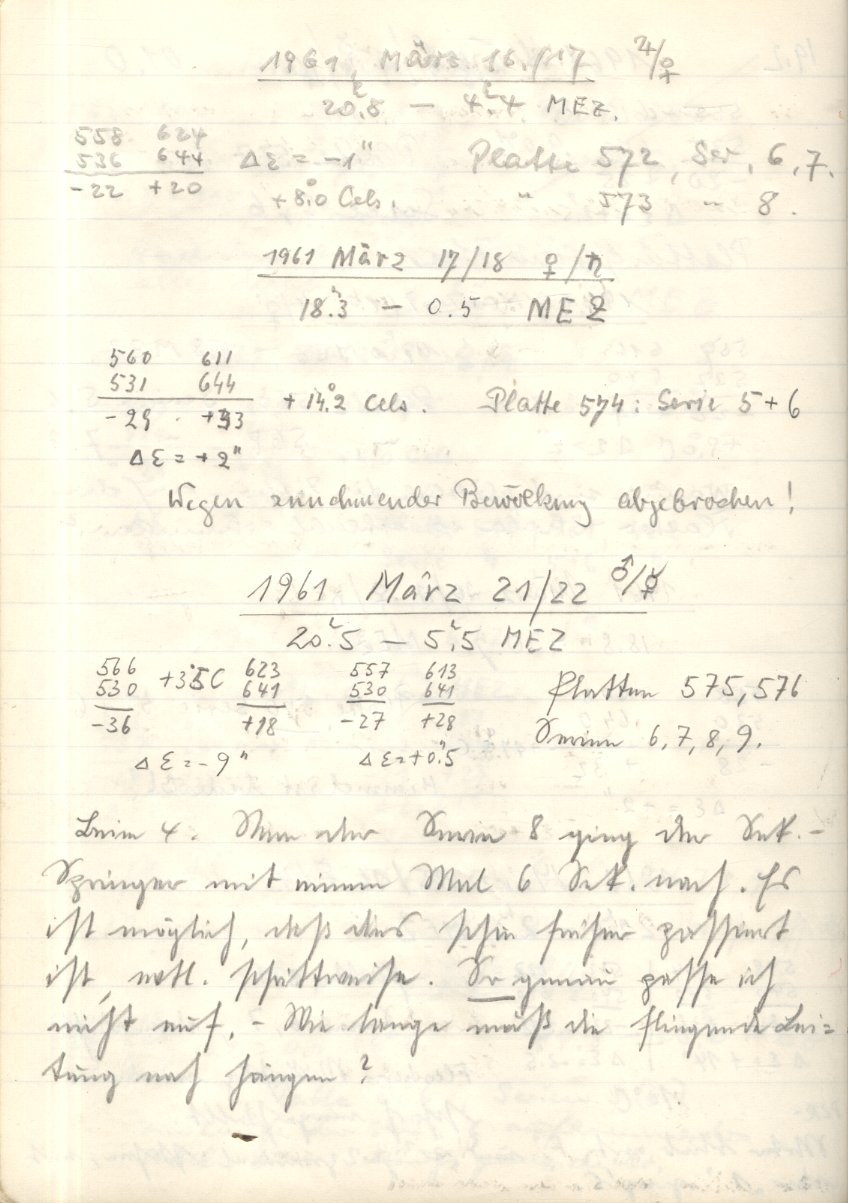 1961 März 16./17 ♃/♀
20.ʰ8 — 4.ʰ4 MEZ.
558 624
536 644 Δε = -1" Platte 572, Ser. 6, 7.
-22 +20 +8.°0 Cels. " 573 " 8.
1961 März 17/18 ♀/♄
18.ʰ3 — 0.5 MEZ
560 611
531 644 + 14.°2 Cels. Platte 574: Serie 5+6
-29 +33
Δε = +2"
Wegen zunehmender Bewölkung abgebrochen!
1961 März 21/22 ♂/☿
20.ʰ5 — 5.ʰ5 MEZ
566 +3.°5 C 623 557 613
530 641 530 641 Platten 575, 576
-36 +18 -27 +28 Serien 6, 7, 8, 9.
Δε = -9" Δε = +0."5
Beim 4. Stern der Serie 8 ging der Sek.-
Springer mit einem Mal 6 Sek. nach. Es
ist möglich, daß dies schon früher passiert
ist, evtl. schrittweise. So genau passe ich
nicht auf. - Wie lange muß die fliegende Lei=
tung noch hängen?